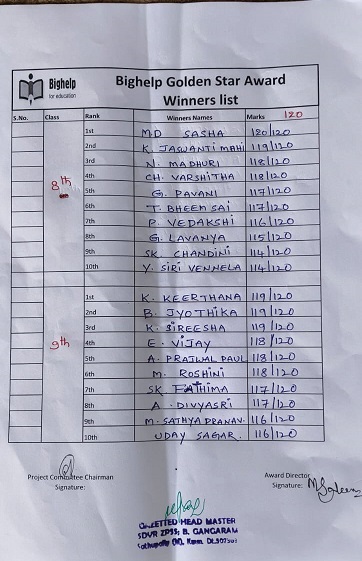 Bighelp
for education
Bighelp Golden Star Award
Winners list
S.No. Class Rank Winners Names Marks 120
1st MD SASHA 120/120
2nd K. JASWANTI MAHI 119/120
3rd N. MADHURI 118/120
4th CH. VARSHITHA 118/120
8th 5th G. PAVANI 117/120
6th T. BHEEM SAI 117/120
7th P. VEDAKSHI 116/120
8th G. LAVANYA 115/120
9th SK. CHANDINI 114/120
10th Y. SIRI VENNELA 114/120
1st K. KEERTHANA 119/120
2nd B. JYOTHIKA 119/120
3rd K. SIREESHA 119/120
9th 4th E. VIJAY 118/120
5th A. PRAJWAL PAUL 118/120
6th M. ROSHINI 118/120
7th SK. FATHIMA 117/120
8th A. DIVYASRI 117/120
9th M. SATHYA PRANAV. 116/120
10th UDAY SAGAR. 116/120
Project Committee Chairman
Signature:
Award Director
Signature:
HEAD MASTER
ZPSS; B. GANGARAM